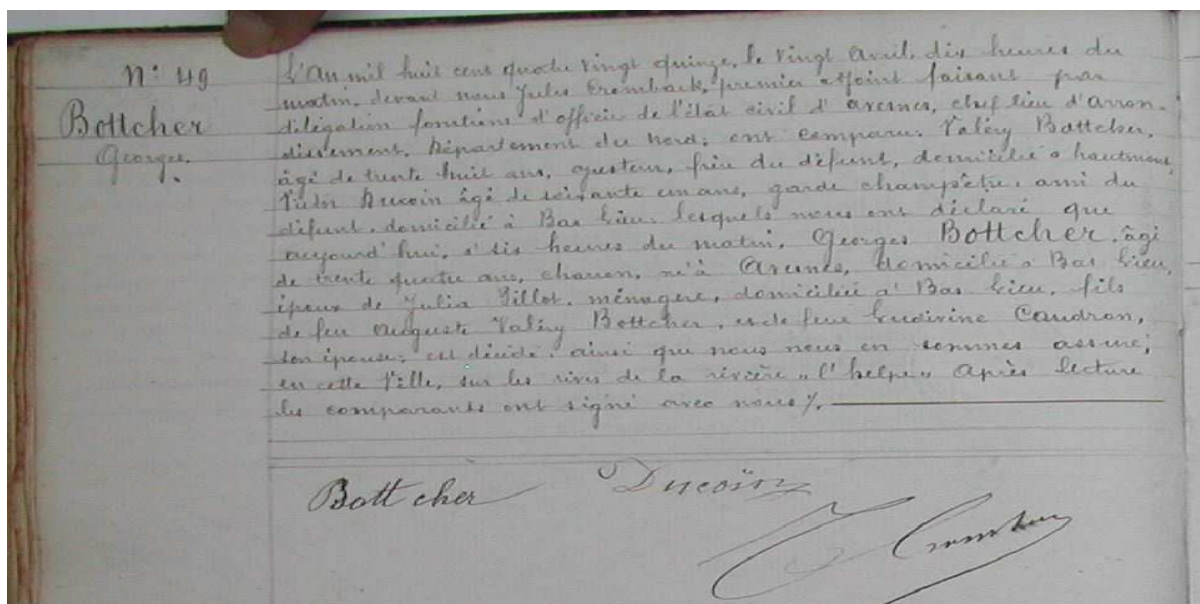 N° 49
Bottcher
Georges.
L'An mil huit cent quatre vingt quinze, le vingt Avril, dix heures du
matin, devant nous Jules Cromback, premier adjoint faisant par
délégation fonctions d'officier de l'état civil d'Avesnes, chef lieu d'arron-
dissement, Département du Nord; ont comparu: Valéry Bottcher,
âgé de trente huit ans, frère du défunt, domicilié à hautmont,
Victor Ducoin âgé de soixante un ans, garde champêtre, ami du
défunt, domicilié à Bas lieu, lesquels nous ont déclaré que
aujourd'hui, à six heures du matin, Georges BOTTCHER, âgé
de trente quatre ans, né à Avesnes, domicilié à Bas lieu,
époux de Julia Gillot, ménagère, domiciliée à Bas lieu, fils
de feu Auguste Valéry Bottcher, et de feue Ludivine Caudron,
son épouse; est décédé, ainsi que nous nous en sommes assuré;
en cette Ville, sur les rives de la rivière „l'helpe„ Après lecture
les comparants ont signé avec nous %.
Bottcher Ducoin